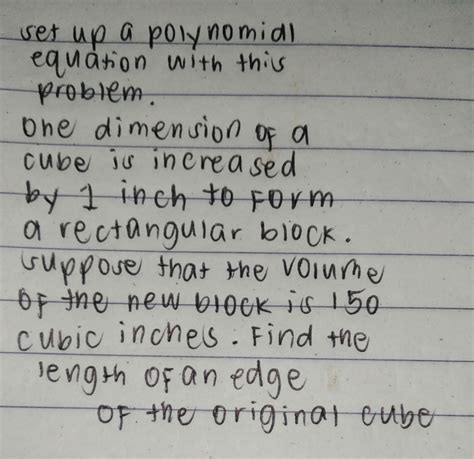 set up a polynomial
equation with this
problem.
one dimension of a
cube is increased
by 1 inch to form
a rectangular block.
suppose that the volume
of the new block is 150
cubic inches. Find the
length of an edge
of the original cube